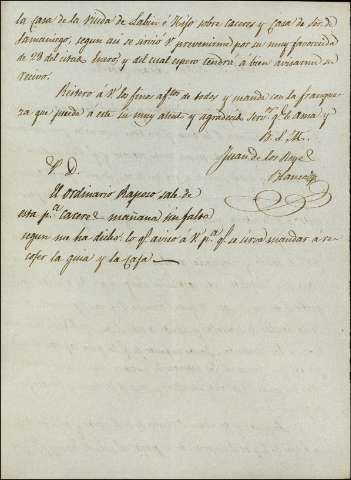 la Casa de la Viuda de Labin é Hijo sobre Caceres y Casa de Sor. de
Samaniego, segun asi se sirvió V prevenirme por su muy favorecida
de 23 del citado Enero, y del cual espero tendrá á bien avisarme su
recivo.
Reitero á V las finas aftos de todos y mande con la franque
za que puede á este su muy atento y agradecido servor. q. le ama y
B. S. M.
Juan de los Reyes
Blanco
P. D.
El Ordinario Raposo sale de
esta pa. Caceres mañana sin falta
segun me ha dicho: lo qe. aviso á V pa. qe. se sirva mandar a re-
coger la guia y la Caja.